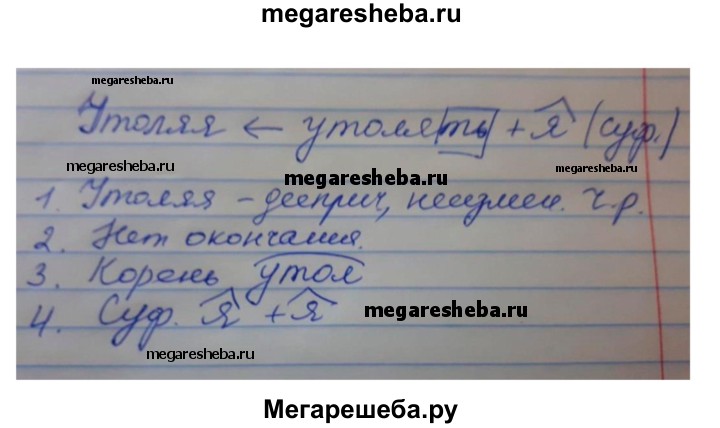 megaresheba.ru
megaresheba.ru
Утоляя ← утолять + я (суф.)
megaresheba.ru
megaresheba.ru
megaresheba.ru
1. Утоляя – дееприч, неизмен. ч.р.
2. Нет окончания.
3. Корень утол
4. Суф. я + я
megaresheba.ru
megaresheba.ru
Мегарешеба.ру